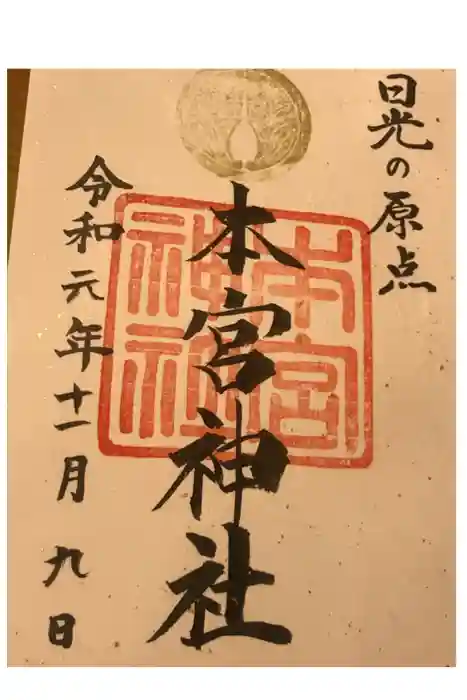 日光の原点
本宮神社
令和元年十一月九日